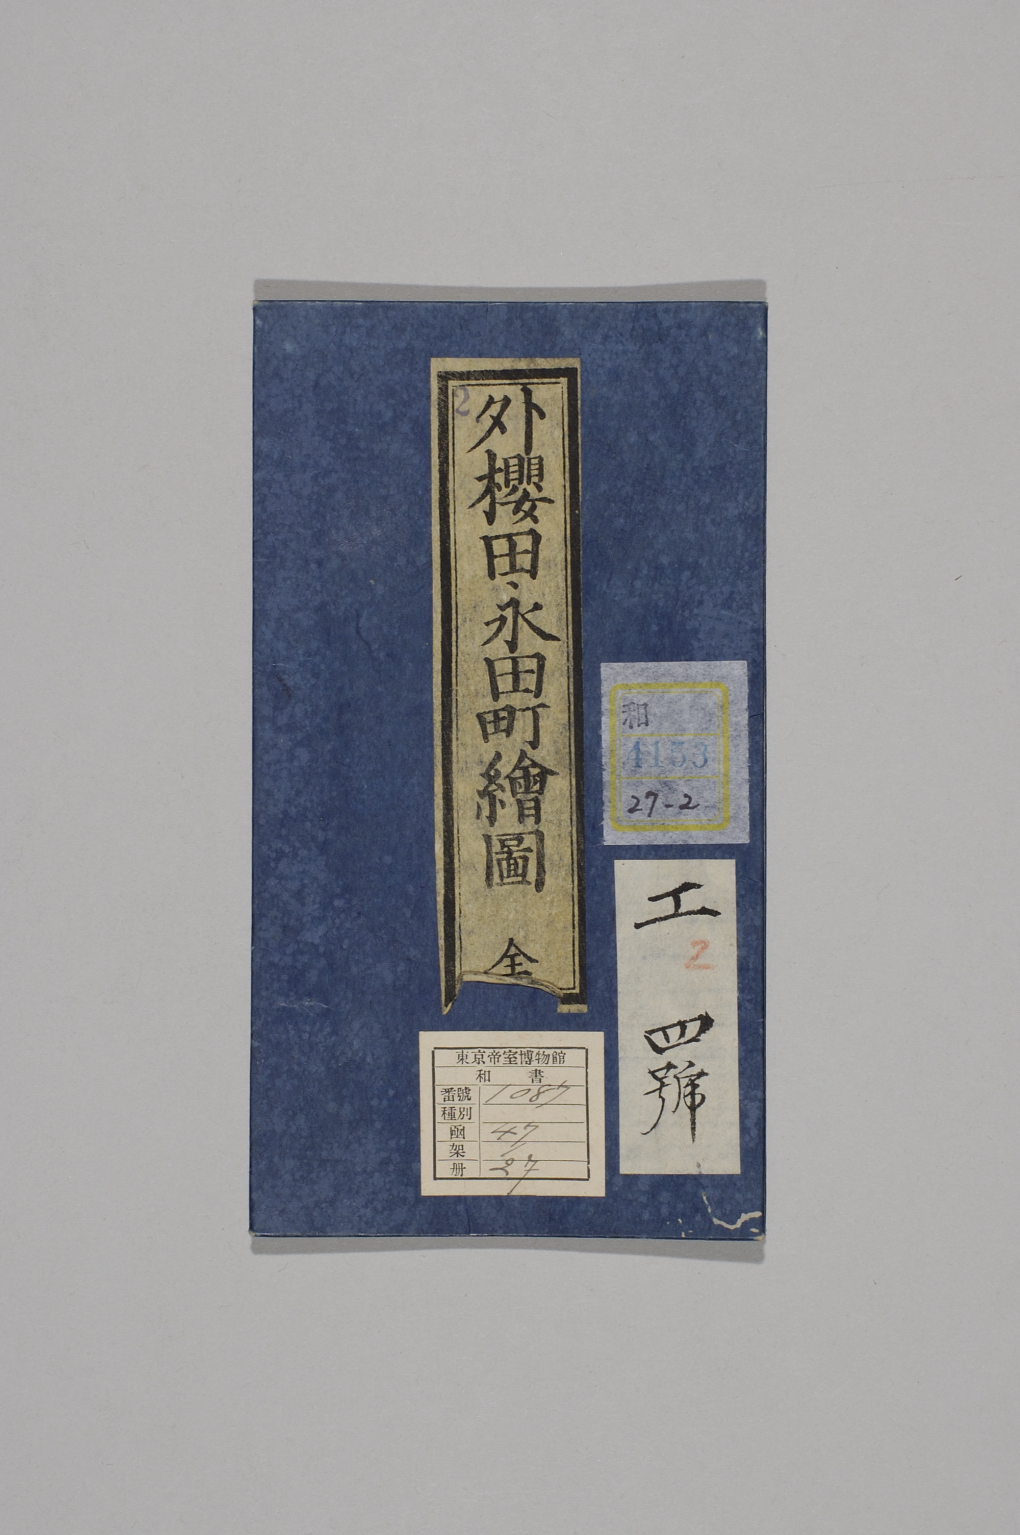 外櫻田永田町繪圖 全
2
和
4153
27-2
工
2
四號
東京帝室博物館
和 書
番號 1087
種別
凾 47
架 1
册 27